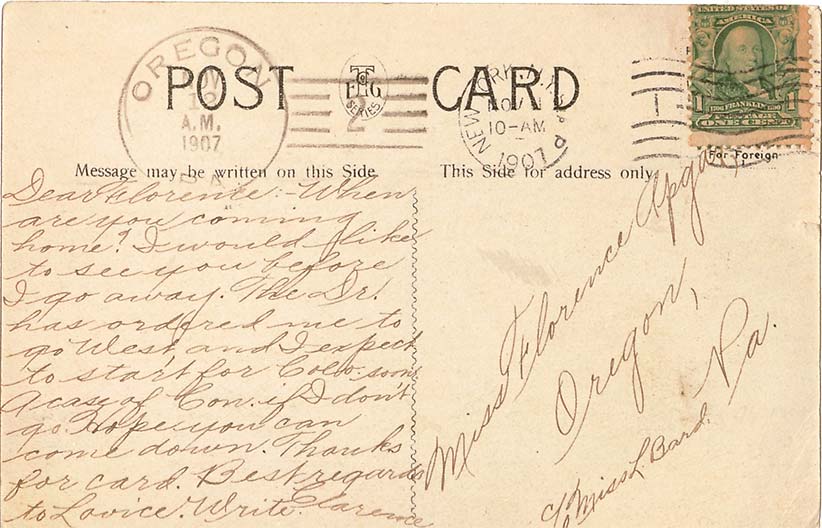 OREGON
NOV
A.M.
1907
PA.
POST CARD
T C
F.H.G.
SERIES
2
NEW YORK, N.Y.
NOV
10-AM
1907
UNITED STATES OF
AMERICA
1 1706 FRANKLIN 1790 1
POSTAGE
ONE CENT
For Foreign
Message may be written on this Side.
This Side for address only.
Dear Florence:- When
are you coming
home? I would like
to see you before
I go away. The Dr.
has ordered me to
go West, and I expect
to start for Colo. soon.
A case of Con. if I don't
go. Hope you can
come down. Thanks
for card. Best regards
to Lovice. Write. Clarence
Miss Florence Apgar
Oregon,
Pa.
c/o Miss L. Bard.